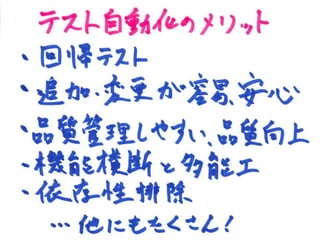 テスト自動化のメリット
・回帰テスト
・追加・変更が容易、安心
・品質管理しやすい、品質向上
・機能横断と多能工
・依存性排除
…他にもたくさん!